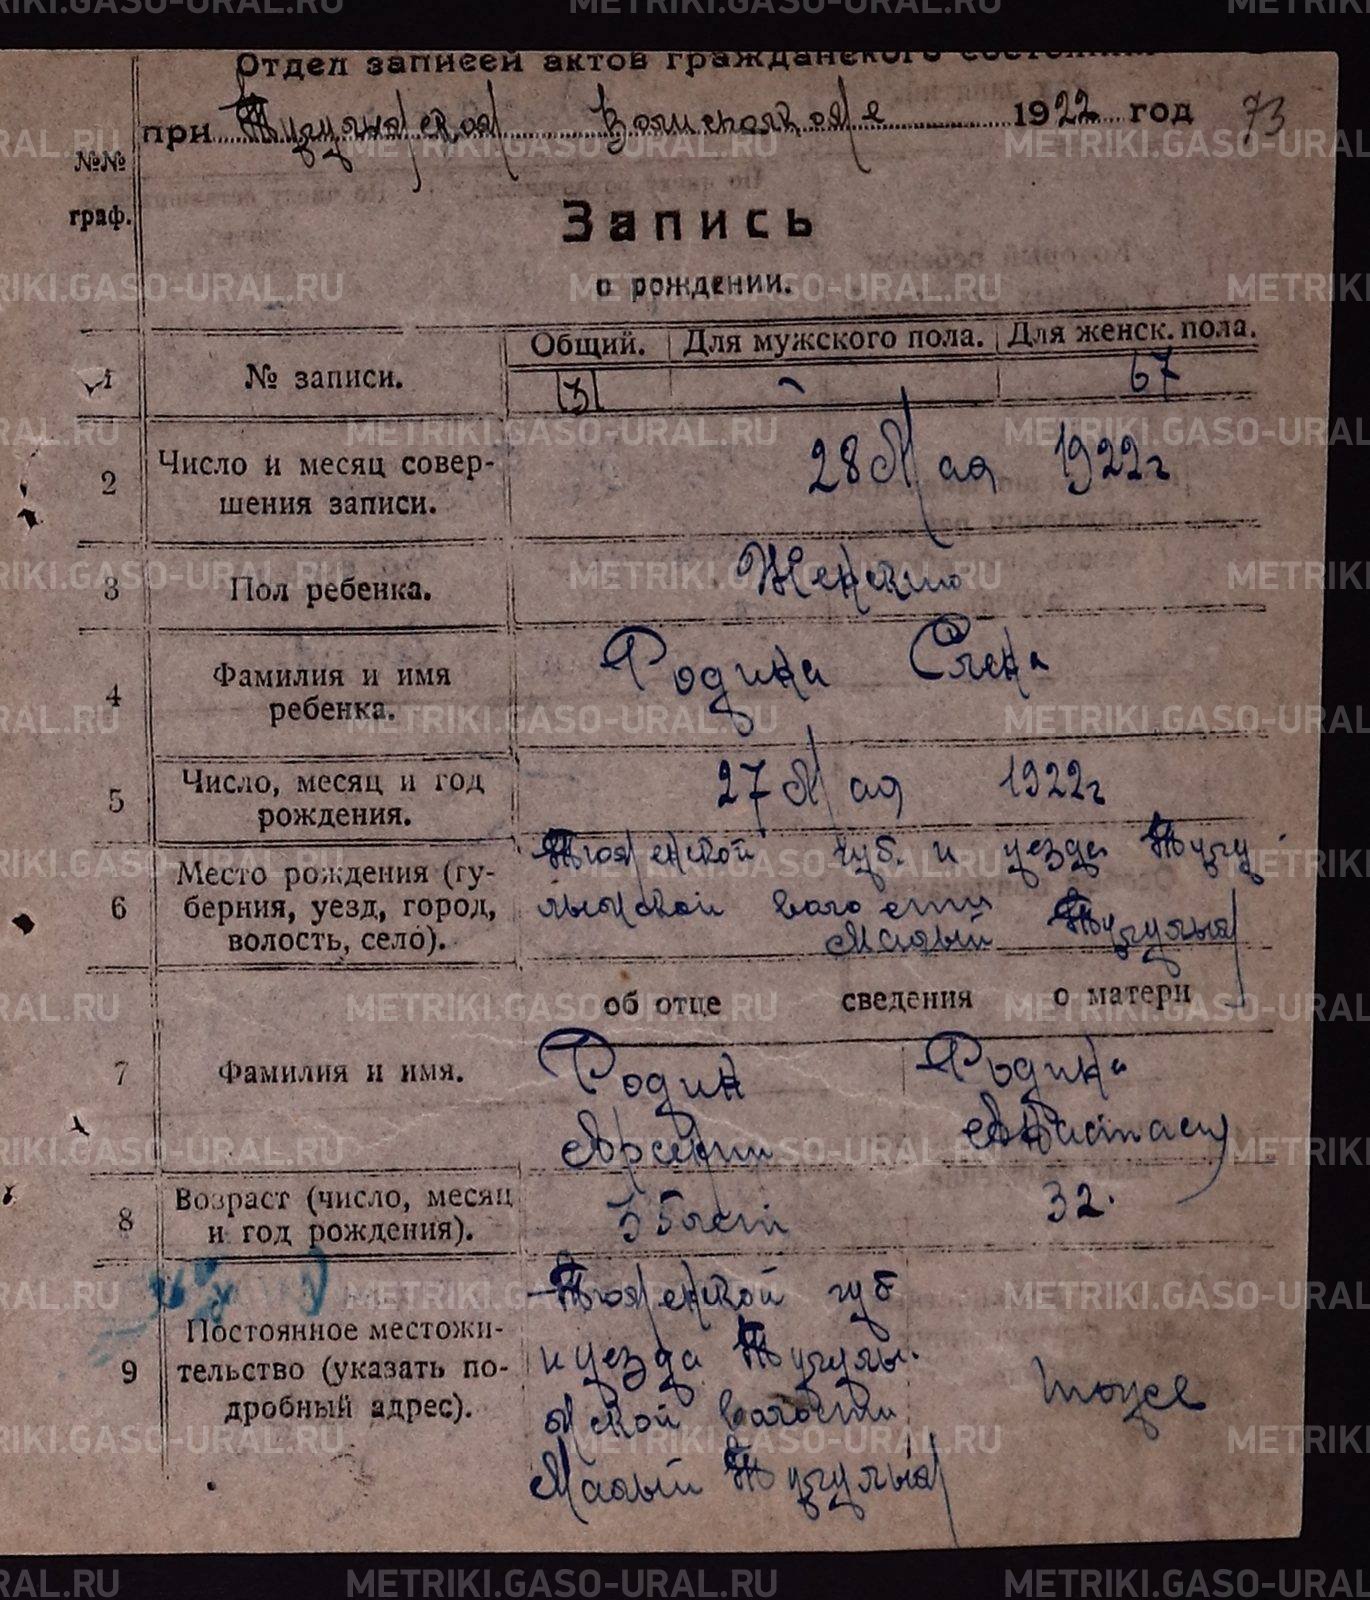 Отдел записей актов гражданского состояния
при Тугулымской Волисполкоме 1922 год 73
№№ граф.
Запись
о рождении.
Общий. Для мужского пола. Для женск. пола.
1 № записи. 131 - 67
2 Число и месяц совер-
шения записи. 28 Мая 1922 г
3 Пол ребенка. Женского
4 Фамилия и имя
ребенка. Родина Елена
5 Число, месяц и год
рождения. 27 Мая 1922 г
6 Место рождения (гу-
берния, уезд, город,
волость, село).
Тюменской губ. и уезда Тугу
лымской волости
Малый Тугулым
об отце сведения о матери
7 Фамилия и имя.
Родин Родина
Арсений Анастасия
8 Возраст (число, месяц
и год рождения). 35 лет 32.
9 Постоянное местожи-
тельство (указать по-
дробный адрес).
Тюменской губ
и уезда Тугулы-
мской волости
Малый Тугулым
тоже
METRIKI.GASO-URAL.RU